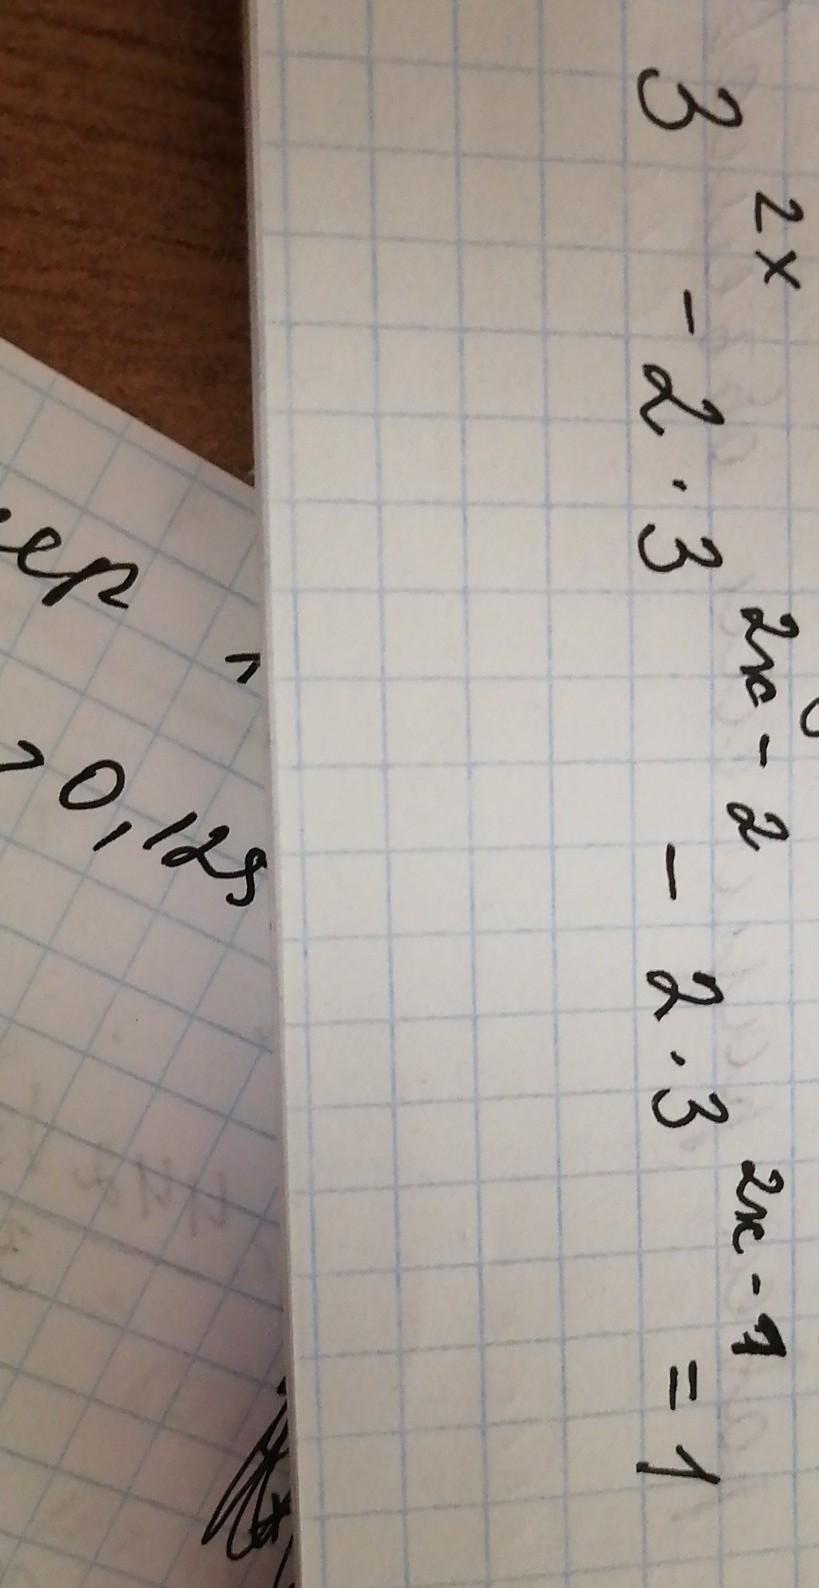 3^{2x} - 2 · 3^{2x-2} - 2 · 3^{2x-1} = 1
0,125